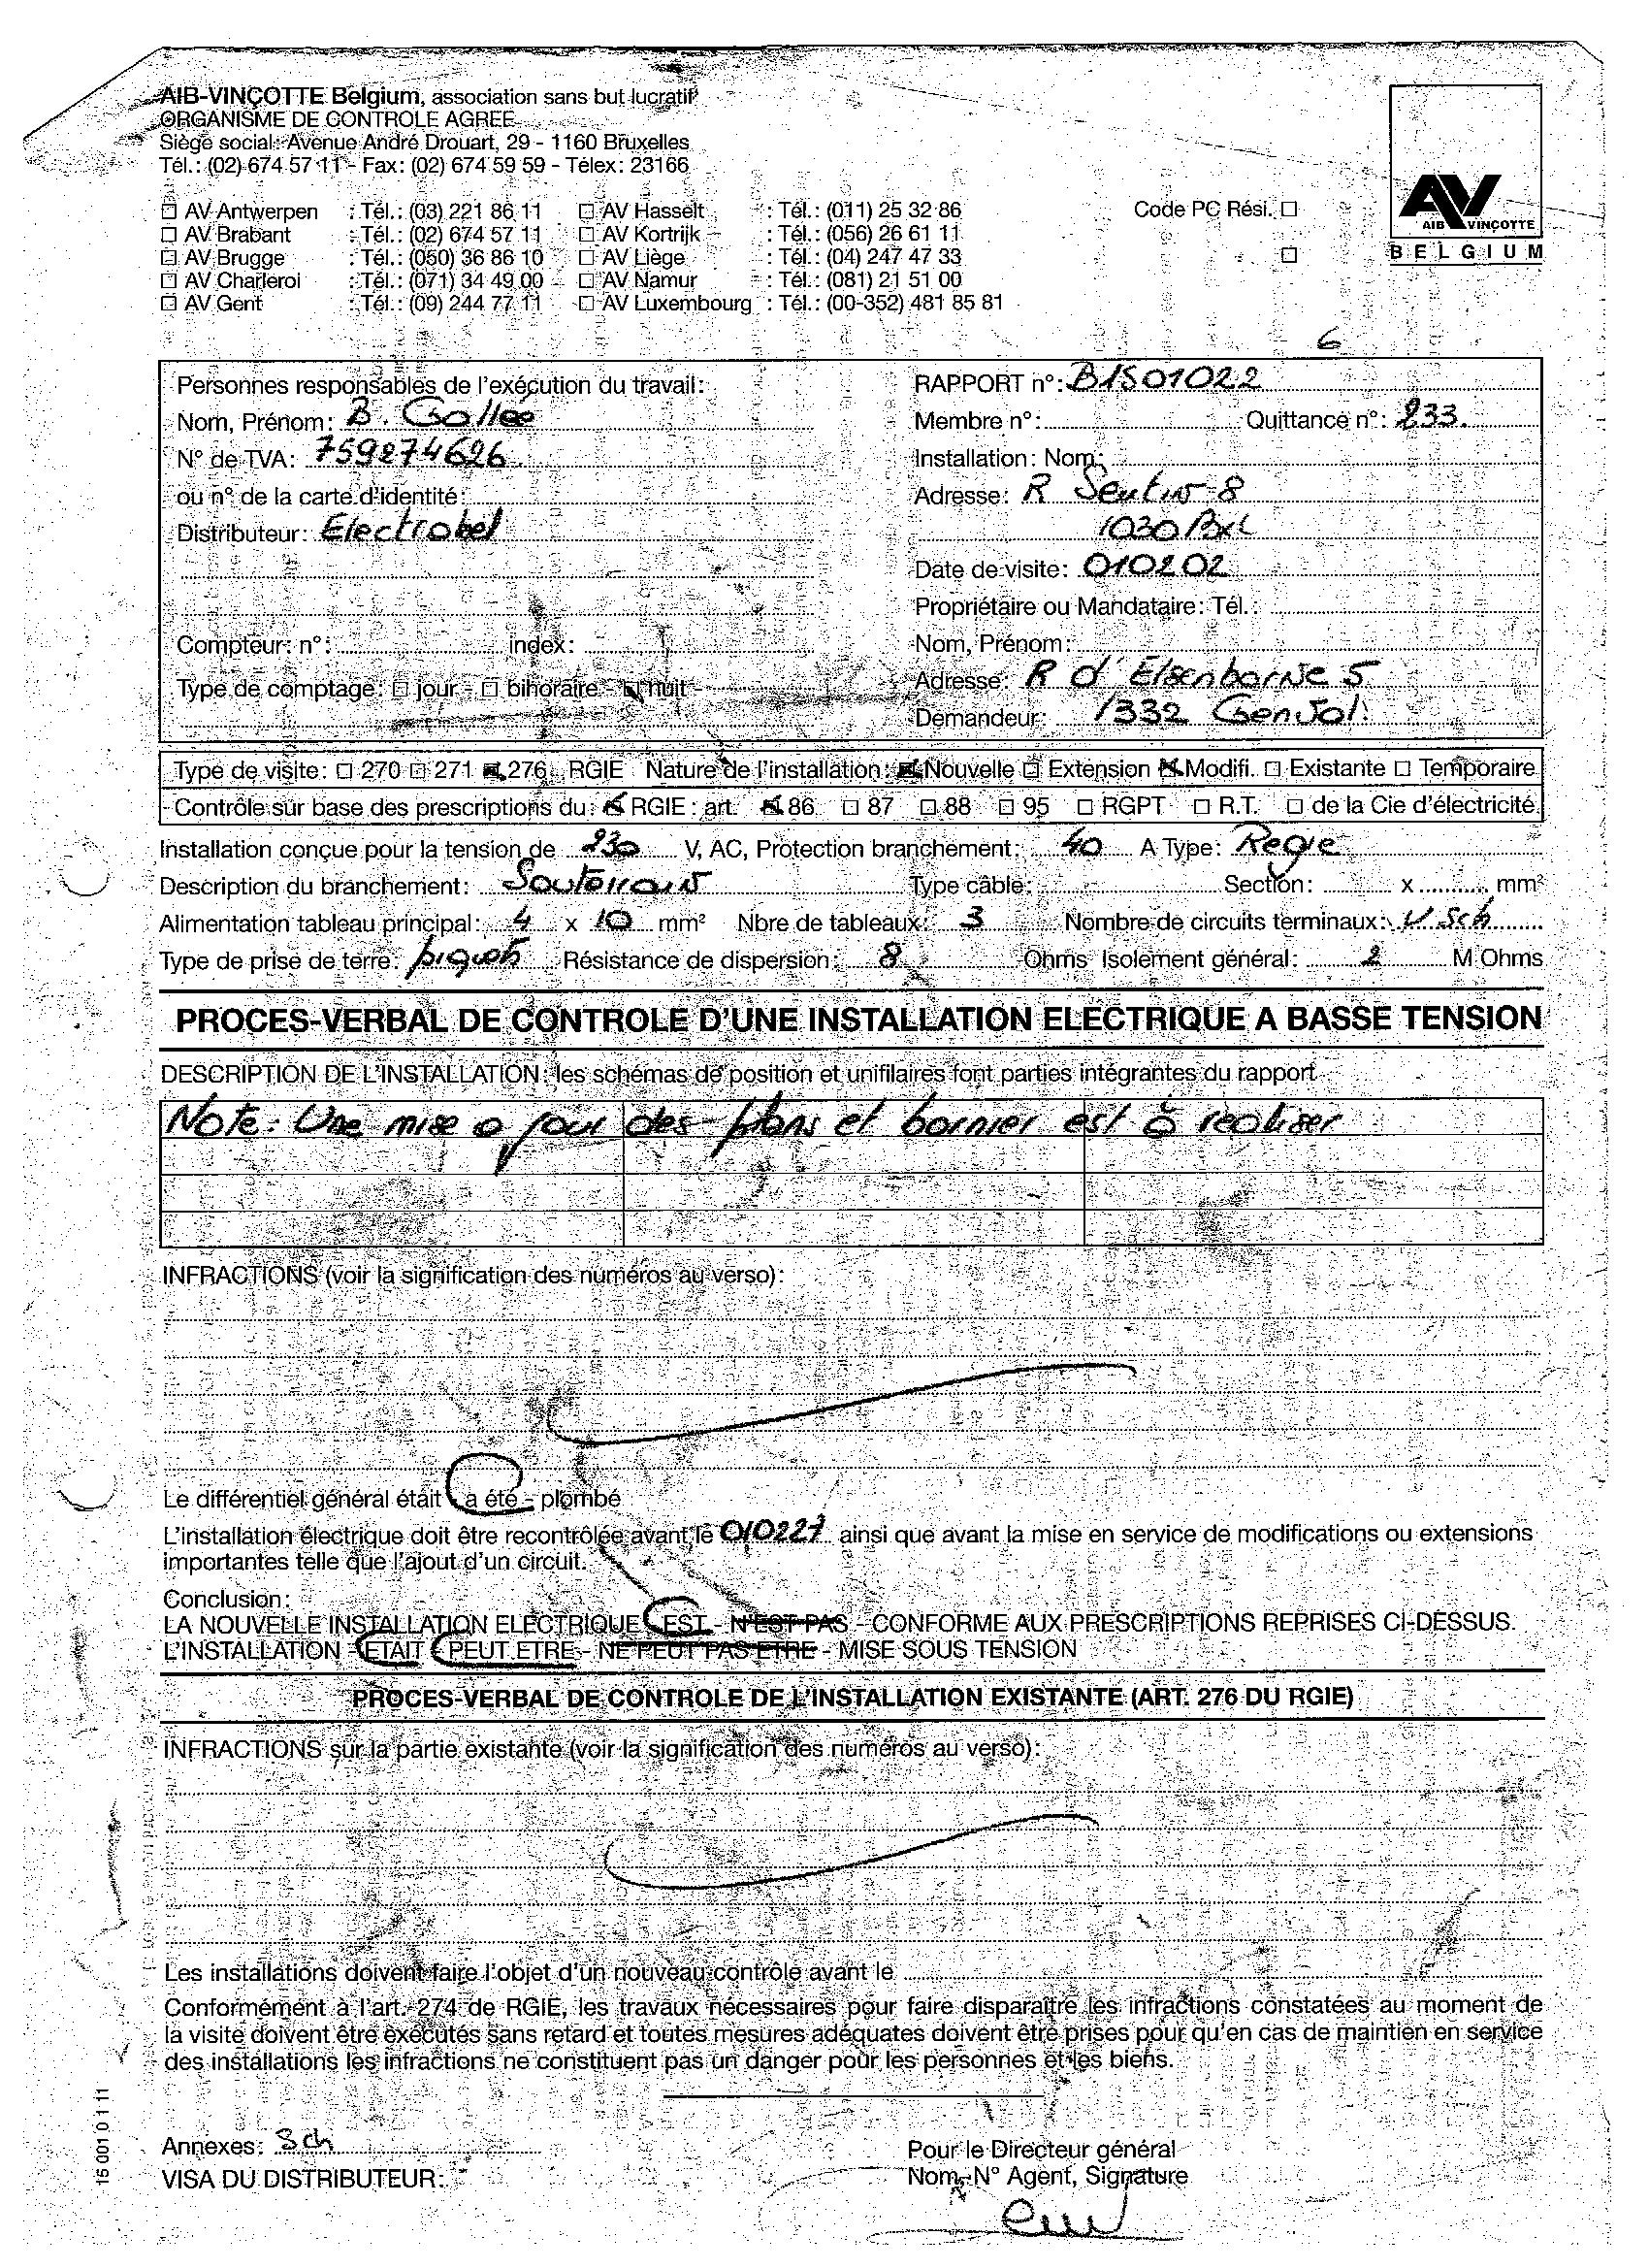 AIB-VINÇOTTE Belgium, association sans but lucratif
ORGANISME DE CONTROLE AGREE
Siège social: Avenue André Drouart, 29 - 1160 Bruxelles
Tél.: (02) 674 57 11 - Fax: (02) 674 59 59 - Télex: 23166
□ AV Antwerpen : Tél.: (03) 221 86 11 □ AV Hasselt : Tél.: (011) 25 32 86 Code PC Rési. □
□ AV Brabant : Tél.: (02) 674 57 11 □ AV Kortrijk : Tél.: (056) 26 61 11
□ AV Brugge : Tél.: (050) 36 86 10 □ AV Liège : Tél.: (04) 247 47 33 □
□ AV Charleroi : Tél.: (071) 34 49 00 □ AV Namur : Tél.: (081) 21 51 00
□ AV Gent : Tél.: (09) 244 77 11 □ AV Luxembourg : Tél.: (00-352) 481 85 81
AV
AIB VINÇOTTE
BELGIUM
6
Personnes responsables de l'exécution du travail:
Nom, Prénom: B. Gallée
N° de TVA: 759274626
ou n° de la carte d'identité:
Distributeur: Electrabel
Compteur: n°: index:
Type de comptage: □ jour - □ bihoraire - ☒ nuit
RAPPORT n°: B1S01022
Membre n°: Quittance n°: 233.
Installation: Nom:
Adresse: R 8
1030 Bxl
Date de visite: 010202
Propriétaire ou Mandataire: Tél.:
Nom, Prénom:
Adresse: R d'Elsenborne 5
Demandeur: 1332 Genval
Type de visite: □ 270 □ 271 ☒ 276 RGIE Nature de l'installation: ☒ Nouvelle □ Extension ☒ Modifi. □ Existante □ Temporaire
Contrôle sur base des prescriptions du: ☒ RGIE : art. ☒ 86 □ 87 □ 88 □ 95 □ RGPT □ R.T. □ de la Cie d'électricité
Installation conçue pour la tension de 230 V, AC, Protection branchement: 40 A Type: Regie
Description du branchement: Souterrain Type câble: Section: x mm²
Alimentation tableau principal: 4 x 10 mm² Nbre de tableaux: 3 Nombre de circuits terminaux: V Sch
Type de prise de terre: piquets Résistance de dispersion: 8 Ohms Isolement général: 2 M Ohms
PROCES-VERBAL DE CONTROLE D'UNE INSTALLATION ELECTRIQUE A BASSE TENSION
DESCRIPTION DE L'INSTALLATION: les schémas de position et unifilaires font parties intégrantes du rapport
Note: Une mise a jour des plans et bornier est à realiser
INFRACTIONS (voir la signification des numéros au verso):
Le différentiel général était - a été - plombé
L'installation électrique doit être recontrôlée avant le 010227 ainsi que avant la mise en service de modifications ou extensions
importantes telle que l'ajout d'un circuit.
Conclusion:
LA NOUVELLE INSTALLATION ELECTRIQUE EST - N'EST PAS - CONFORME AUX PRESCRIPTIONS REPRISES CI-DESSUS.
L'INSTALLATION - ETAIT - PEUT ETRE - NE PEUT PAS ETRE - MISE SOUS TENSION
PROCES-VERBAL DE CONTROLE DE L'INSTALLATION EXISTANTE (ART. 276 DU RGIE)
INFRACTIONS sur la partie existante (voir la signification des numéros au verso):
Les installations doivent faire l'objet d'un nouveau contrôle avant le
Conformément à l'art. 274 de RGIE, les travaux nécessaires pour faire disparaître les infractions constatées au moment de
la visite doivent être exécutés sans retard et toutes mesures adéquates doivent être prises pour qu'en cas de maintien en service
des installations les infractions ne constituent pas un danger pour les personnes et les biens.
15 001 0 1 11
Annexes: Sch
VISA DU DISTRIBUTEUR:
Pour le Directeur général
Nom, N° Agent, Signature